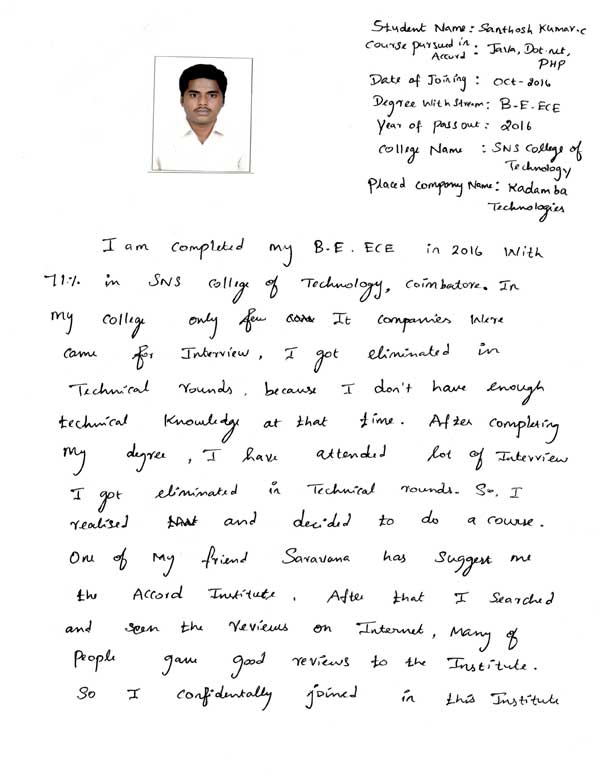 Student Name : Santhosh Kumar.C
Course pursued in Accord : Java, Dot.net, PHP
Date of Joining : Oct-2016
Degree with Stream : B-E-ECE
Year of Pass out : 2016
College Name : SNS College of Technology
Placed Company Name : Kadamba Technologies
I am completed my B.E. ECE in 2016 With
71% in SNS college of Technology, Coimbatore. In
my college only few It companies were
came for Interview, I got eliminated in
Technical rounds, because I don't have enough
technical Knowledge at that time. After completing
my degree, I have attended lot of Interview
I got eliminated in Technical rounds. So, I
realised that and decided to do a course.
One of My friend Saravana has Suggest me
the Accord Institute. After that I Searched
and seen the reviews on Internet, Many of
People gave good reviews to the Institute.
So I confidentally joined in this Institute